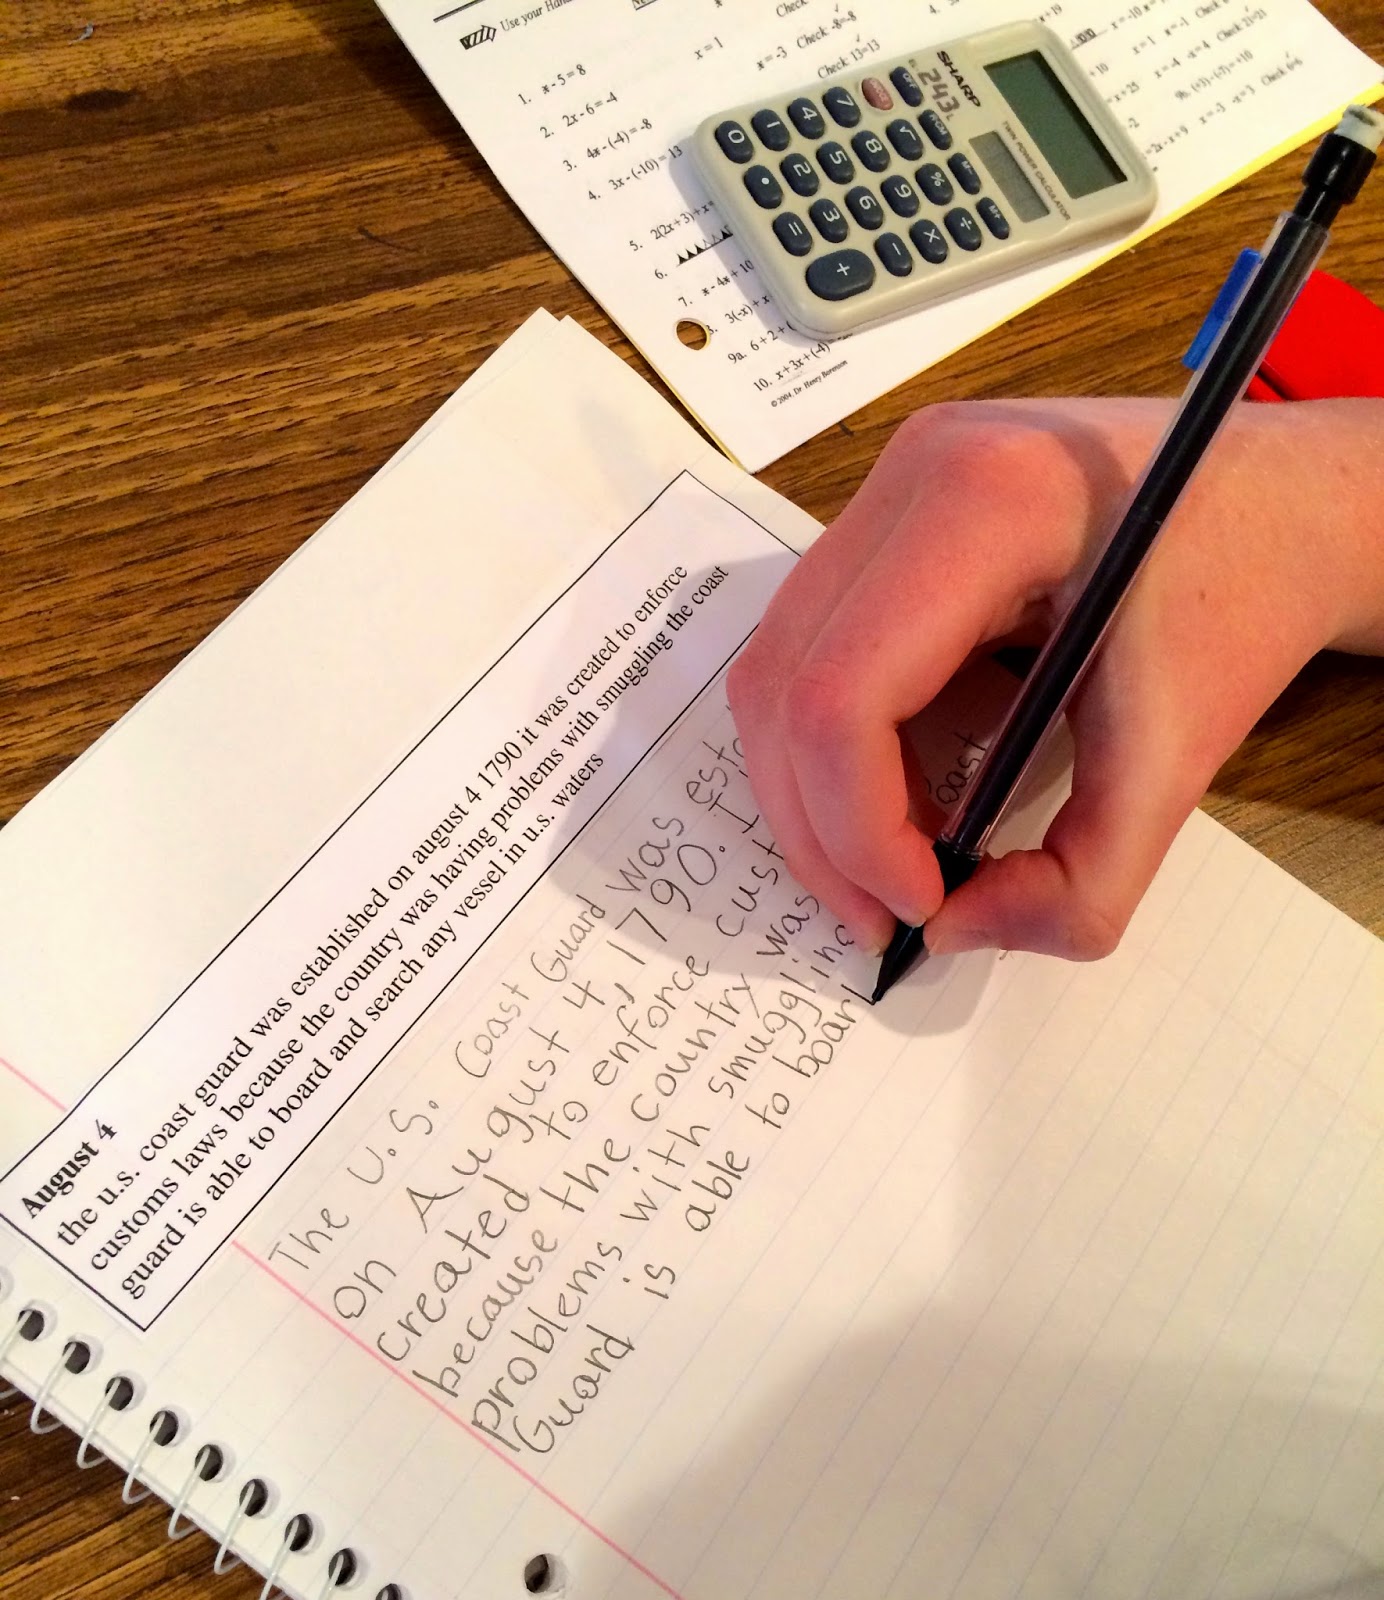 Use your Hand
x = 1
x = -3 Check -8=-8
Check 13=13
1. x - 5 = 8
2. 2x - 6 = -4
3. 4x - (-4) = -8
4. 3x - (-10) = 13
5. 2(2x + 3) + x =
6.
7. x - 4x + 10
3(-x) + x
9a. 6 + 2 + (
10. x + 3x + (-4) =
© 2004, Dr. Henry Borenson
Check 21=21
x = -4 -x = 4
9b. (+3) - (-7) = +10
x = -3 -x = 3 Check 6=6
SHARP
243
TWIN POWER CALCULATOR
0 1 4 7
. 2 5 8 √
= 3 6 9 % M-
+ - × ÷ M+
August 4
the u.s. coast guard was established on august 4 1790 it was created to enforce
customs laws because the country was having problems with smuggling the coast
guard is able to board and search any vessel in u.s. waters
The U.S. Coast Guard was est
on August 4, 1790. It
created to enforce cust
because the country was
problems with smuggling oast
Guard is able to board